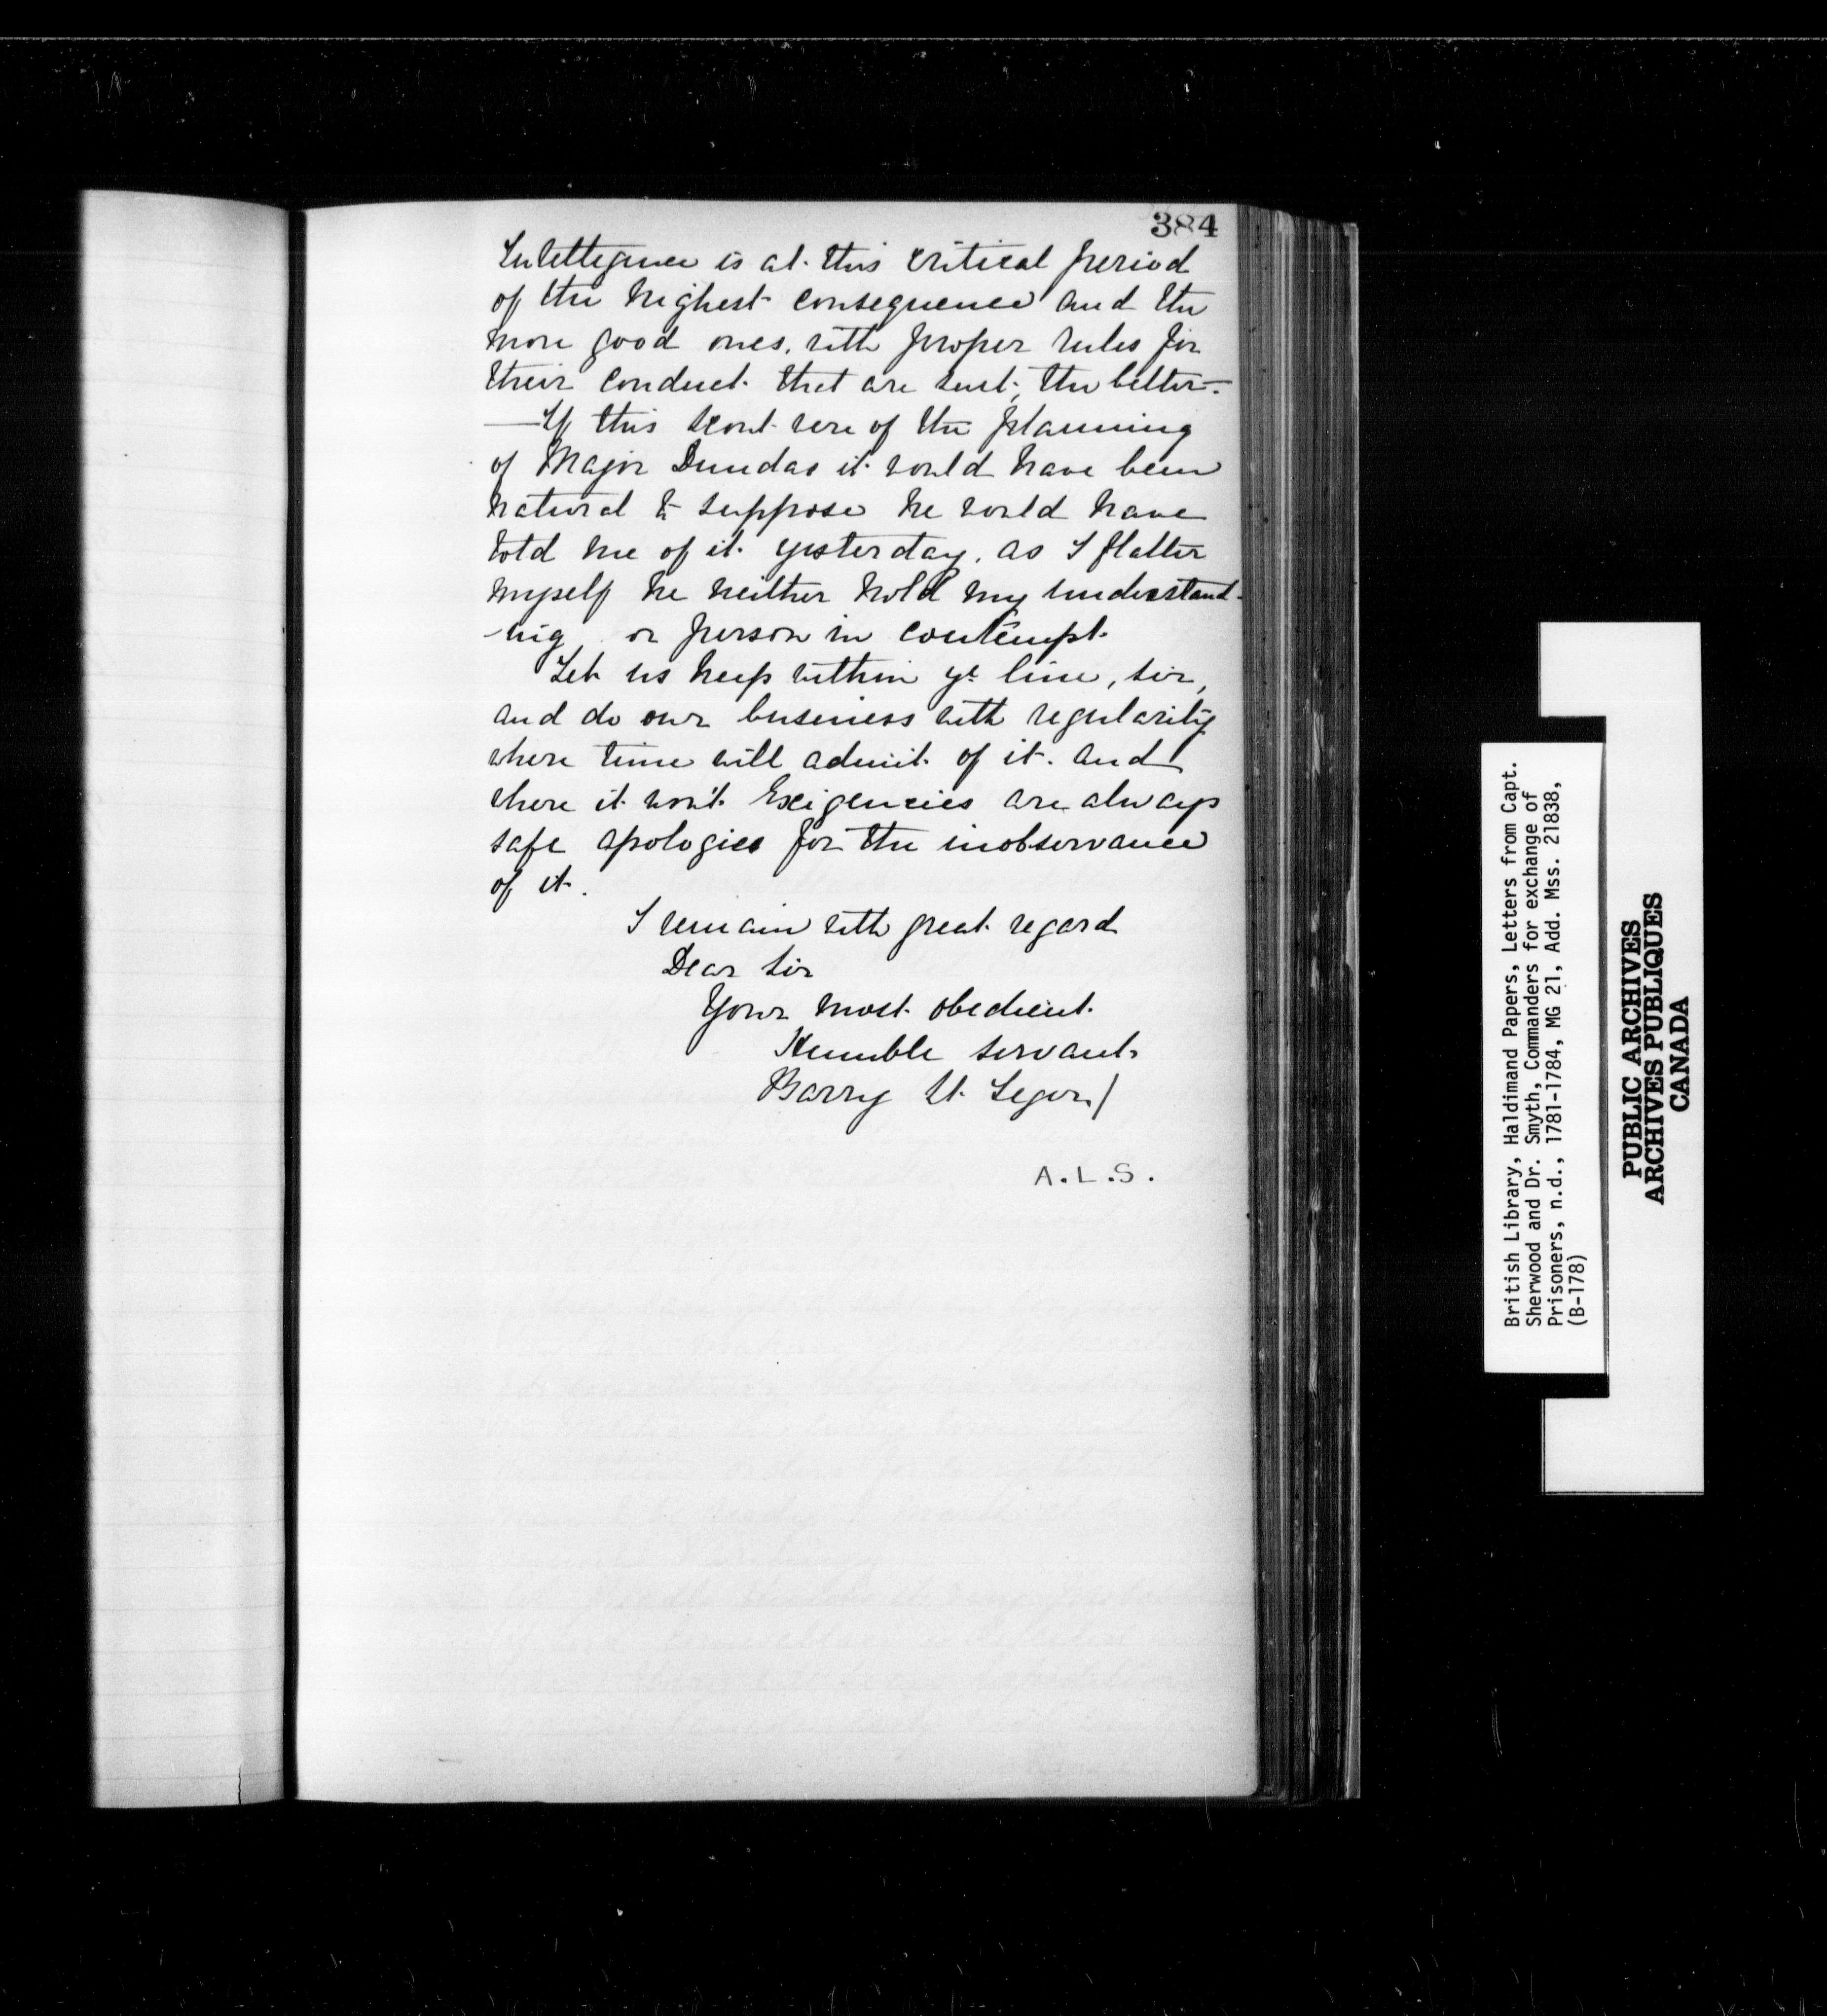 384
Intelligence is at this critical period
of the highest consequence and the
more good ones, with proper rules for
their conduct that are sent, the better.—
—If this scout were of the planning
of Major Dundas it would have been
natural to suppose he would have
told me of it yesterday, as I flatter
myself he neither hold my understand-
-ing or person in contempt.
Let us keep within ye line, sir,
and do our business with regularity
where time will admit of it. and
where it won't Exigencies are always
safe apologies for the inobservance
of it.
I remain with great regard
Dear Sir
Your most obedient
Humble servant
Barry St. Leger/
A.L.S.
British Library, Haldimand Papers, Letters from Capt.
Sherwood and Dr. Smyth, Commanders for exchange of
Prisoners, n.d., 1781-1784, MG 21, Add. Mss. 21838,
(B-178)
PUBLIC ARCHIVES
ARCHIVES PUBLIQUES
CANADA